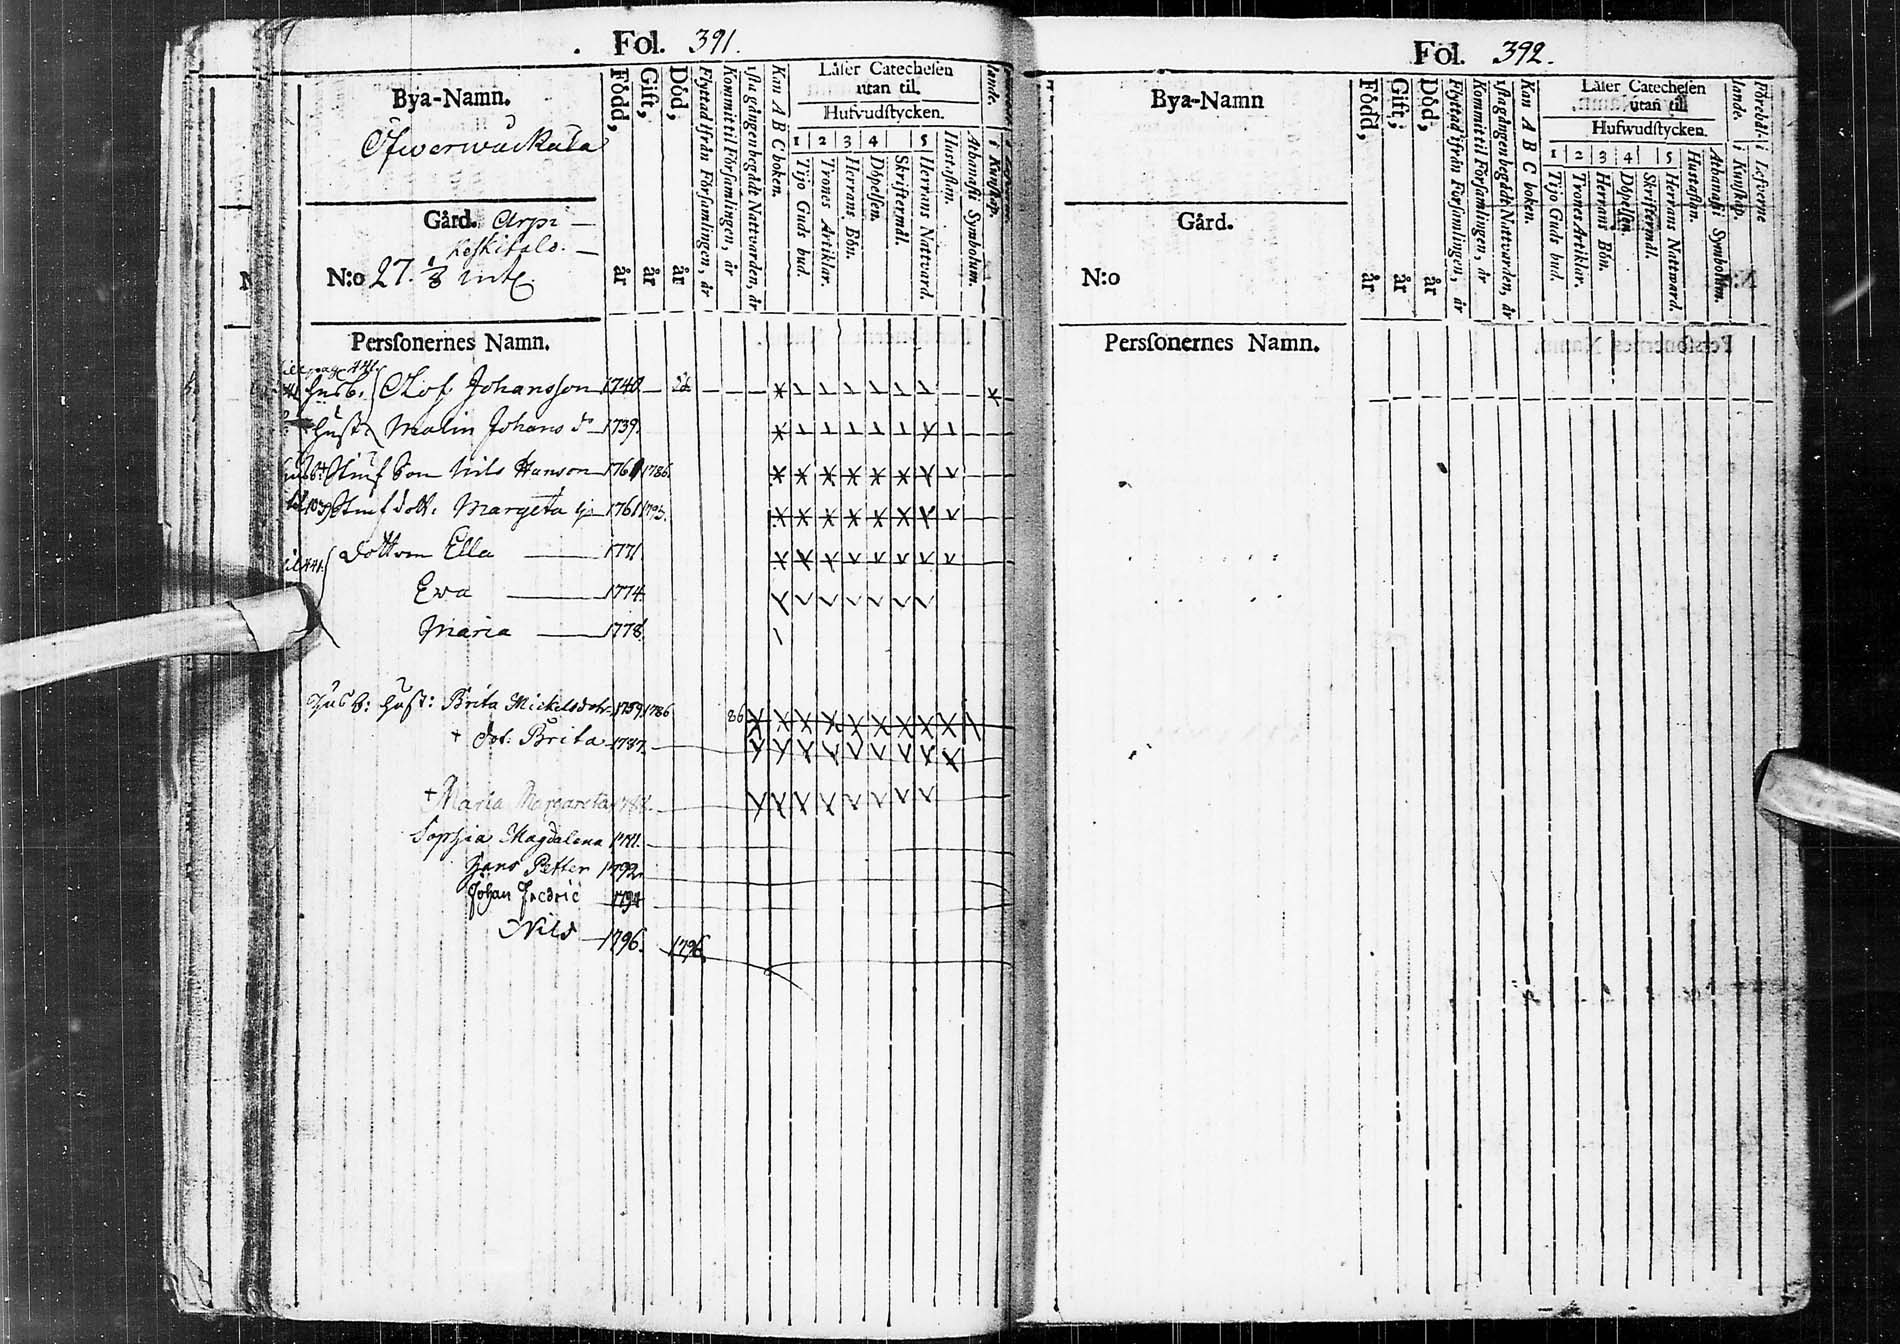 Fol. 391.
Bya-Namn.
Öfwerwäckälä
Gård. Arpi —
Keskitalo. —
N:o 27. 1/8 mtl
Född, år
Gift, år
Död, år
Flyttad ifrån Församlingen, år
Kommit til Församlingen, år
1sta gången begådt Nattvarden, år
Kan A B C boken.
Läser Catechesen
utan til.
Hufvudstycken.
1 2 3 4 5
Tijo Guds bud.
Trones Artiklar.
Herrans Bön.
Döpelsen.
Skriftermål.
Herrans Nattvard.
Hustaflan.
Athanasii Symbolum.
i Kunskap.
Personernes Namn.
pag 441.
Husb. Olof Johansson 1740
Hust: Malin Johans dr 1739.
Stiuf Son Nils Hanson 1761 1786.
Stiuf dott. Margeta 1761 1795.
Dottren Ella 1771
Ewa 1774.
Maria 1778.
Husb: Hust: Brita Mickelsdotr 1759. 1786 86
+ dot: Brita 1787.
+ Maria Margareta 178
Sophia Magdalena 1791.
Hans Petter 1792.
Johan Fredric 1794
Nils 1796. 1796.
Fol. 392.
Bya-Namn
Gård.
N:o
Född, år
Gift, år
Död, år
Flyttad ifrån Församlingen, år
Kommit til Församlingen, år
1sta gången begådt Nattvarden, år
Kan A B C boken.
Läser Catechesen
utan till
Hufwudstycken.
1 2 3 4 5
Tijo Guds bud.
Trones Artiklar.
Herrans Bön.
Döpelsen.
Skriftermål.
Herrans Nattvard.
Hustaflan.
Athanasii Symbolum.
Förehållande.
i Kunskap.
i Lefverne
Personernes Namn.